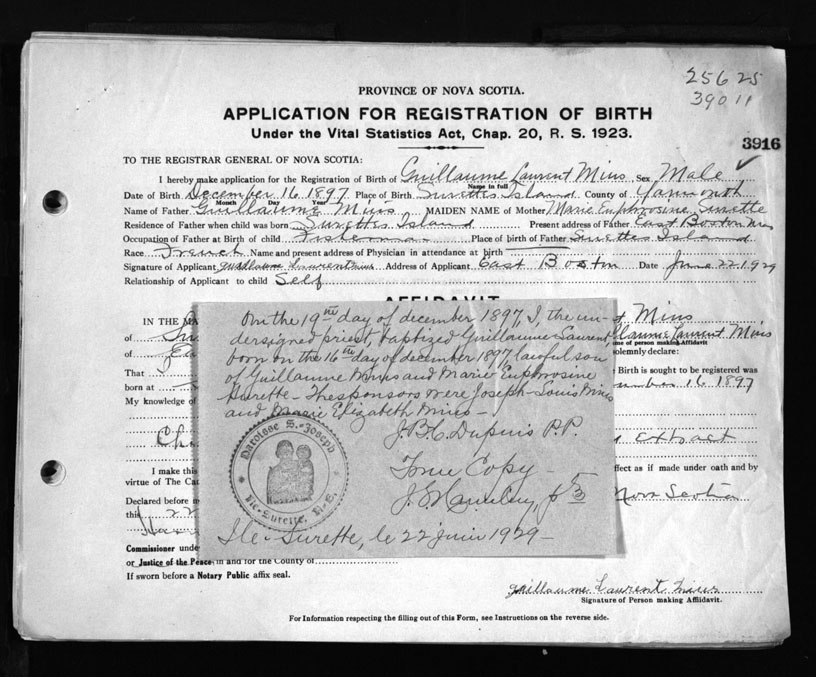 25625
39011
PROVINCE OF NOVA SCOTIA.
APPLICATION FOR REGISTRATION OF BIRTH
Under the Vital Statistics Act, Chap. 20, R. S. 1923.
3916
TO THE REGISTRAR GENERAL OF NOVA SCOTIA:
I hereby make application for the Registration of Birth of Guillaume Laurent Mius Sex Male
Name in full
Date of Birth December 16 1897 Place of Birth Surettes Island County of Yarmouth
Month Day Year
Name of Father Guillaume Mius MAIDEN NAME of Mother Marie Euphrosine Surette
Residence of Father when child was born Surettes Island Present address of Father East Boston Mas
Occupation of Father at Birth of child Place of birth of Father Surettes Island
Race French Name and present address of Physician in attendance at birth
Signature of Applicant Guillaume Laurent Mius Address of Applicant East Boston Date June 22 1929
Relationship of Applicant to child Self
AFFIDAVIT
IN THE MA Mius
of Guillaume Laurent Mius
name of person making Affidavit
of solemnly declare:
That Birth is sought to be registered was
born at 16 1897
My knowledge of
extract
I make this effect as if made under oath and by
virtue of The Ca Nova Scotia
Declared before m
this 22
On the 19th day of december 1897, I, the un-
dersigned priest, baptized Guillaume Laurent,
born on the 16th day of december 1897 lawful son
of Guillaume Mius and Marie Euphrosine
Surette - The sponsors were Joseph-Louis Mius
and Marie Elizabeth Mius -
J.B.C. Dupuis P.P.
True Copy -
Paroisse S.-Joseph
Ile-Surette, N.E.
Ile-Surette, le 22 juin 1929 -
Commissioner unde
or Justice of the Peace in and for the County of
If sworn before a Notary Public affix seal.
Guillaume Laurent Mius
Signature of Person making Affidavit.
For Information respecting the filling out of this Form, see Instructions on the reverse side.